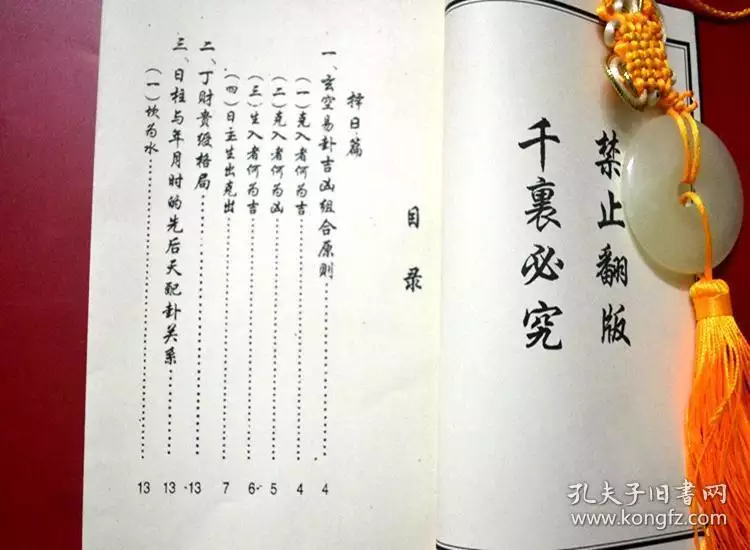 禁止翻版
千裏必究
目录
择日篇
一、玄空易卦吉凶组合原则 4
(一)克入者何为吉 4
(二)克入者何为凶 5
(三)生入者何为吉 6
(四)日主生出克出 7
二、丁财贵缎格局 13
三、日柱与年月时的先后天配卦关系 13
(一)坎为水 13
孔夫子旧书网
www.kongfz.com